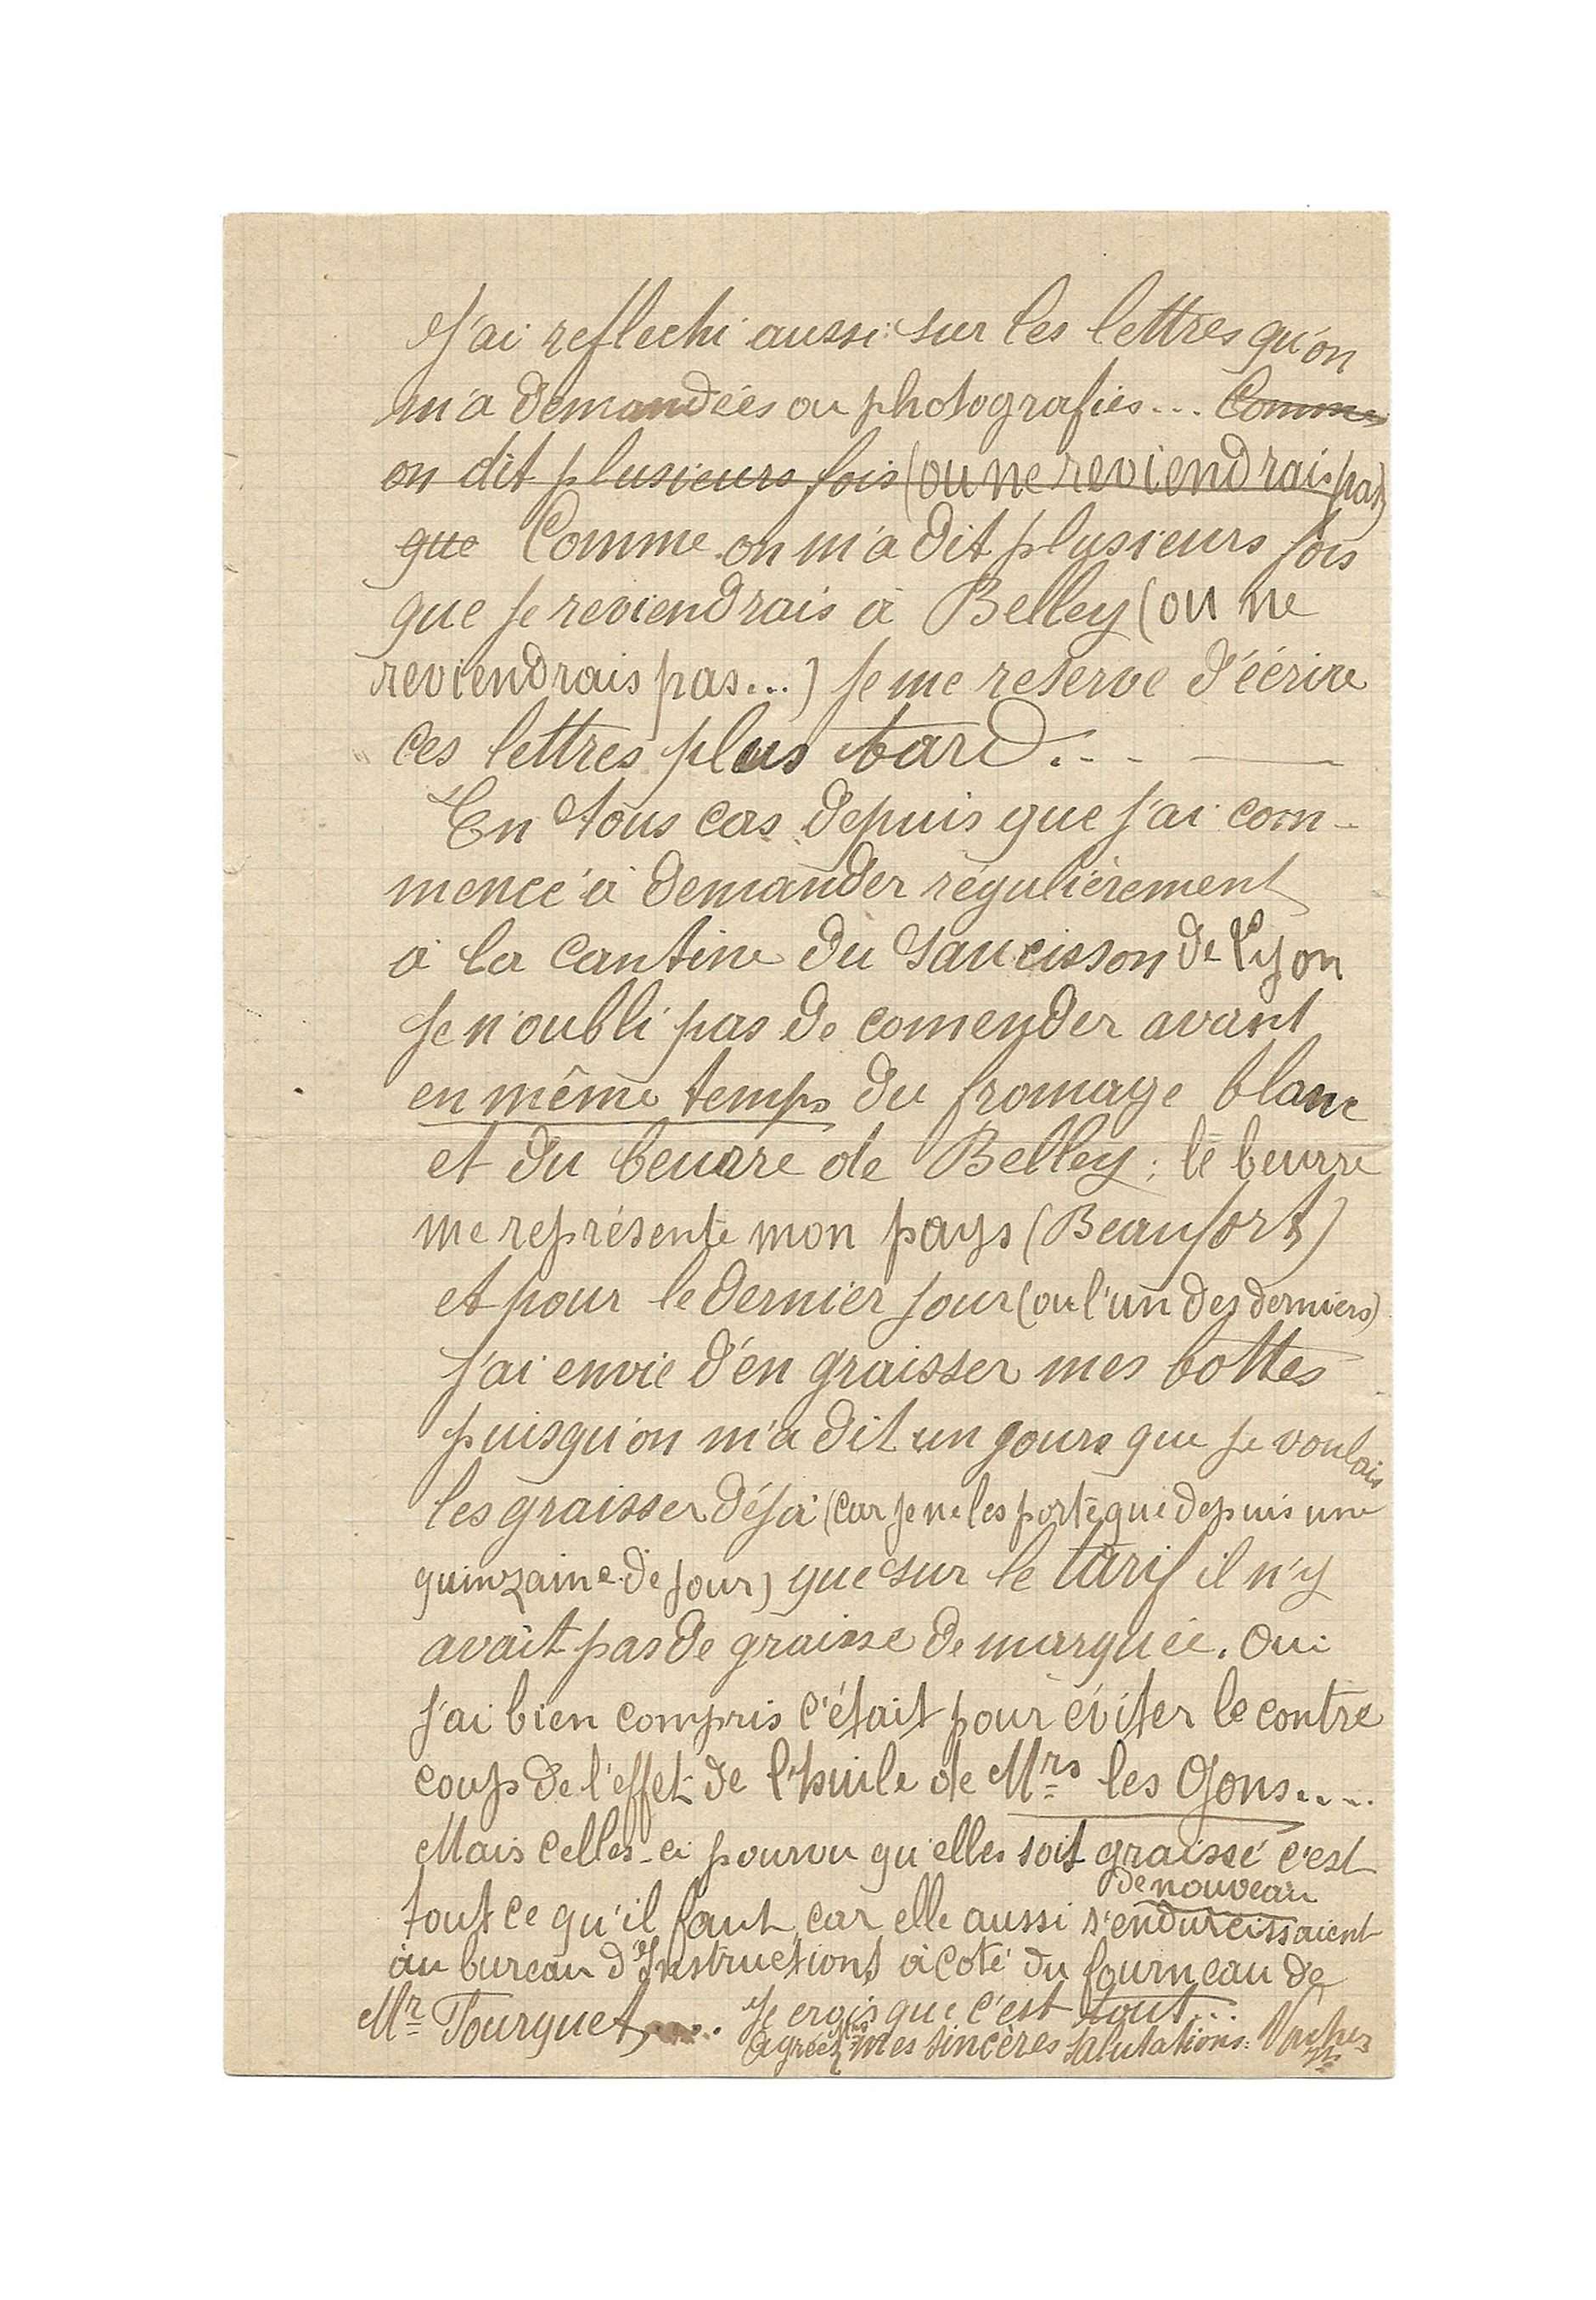 J'ai reflechi aussi sur les lettres qu'on
m'a demandées ou photografies... Comme
on dit plusieurs fois (ou ne reviendrais pas)
que Comme on m'a dit plusieurs fois
que je reviendrais à Belley (ou ne
reviendrais pas...) je me reserve d'écrire
ces lettres plus tard...
En tous cas depuis que j'ai com-
mencé à demander régulièrement
à la cantine du saucisson de Lyon
je n'oubli pas de comender avant
en même temps du fromage blanc
et du beurre de Belley; le beurre
me représente mon pays (Beaufort)
et pour le dernier jour (ou l'un des derniers)
j'ai envie d'en graisser mes bottes
puisqu'on m'a dit un jours que je voulais
les graisser déjà (car je ne les porte que depuis une
quinzaine de jour) que sur le tarif il n'y
avait pas de graisse de marquée. Oui
j'ai bien compris c'était pour éviter le contre
coup de l'effet de l'huile de Mrs les Gons....
Mais celles-ci pourvu qu'elles soit graissé c'est
de nouveau
tout ce qu'il faut, car elle aussi s'endurcissaient
au bureau d'Instructions à coté du fourneau de
Mr Tourquet.... Je crois que c'est tout...
agréez mes sincères salutations. Vacher